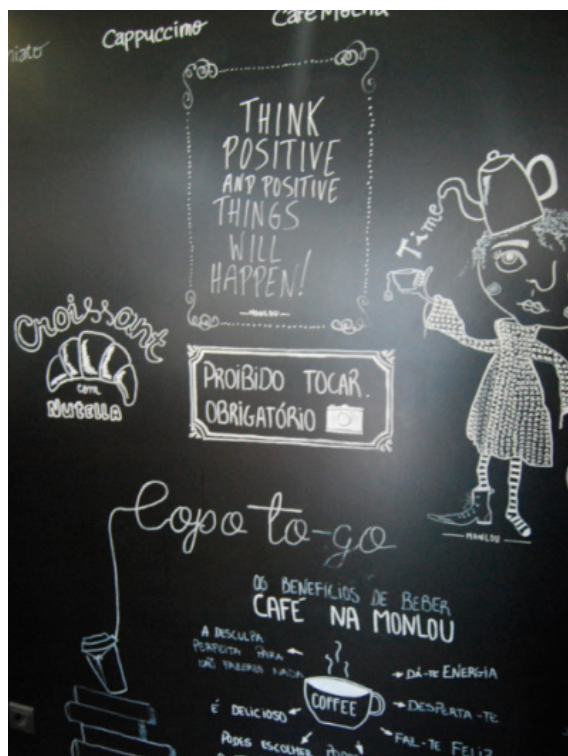 Cappuccino
Café Mocha
THINK
POSITIVE
AND POSITIVE
THINGS
WILL
HAPPEN!
MONLOU
Time
Croissant
COM
NUTELLA
PROIBIDO TOCAR.
OBRIGATÓRIO
MONLOU
Copo to-go
OS BENEFÍCIOS DE BEBER
CAFÉ NA MONLOU
A DESCULPA
PERFEITA PARA
NÃO FAZERES NADA
DÁ-TE ENERGIA
COFFEE
É DELICIOSO
DESPERTA-TE
FAZ-TE FELIZ
PODES ESCOLHER